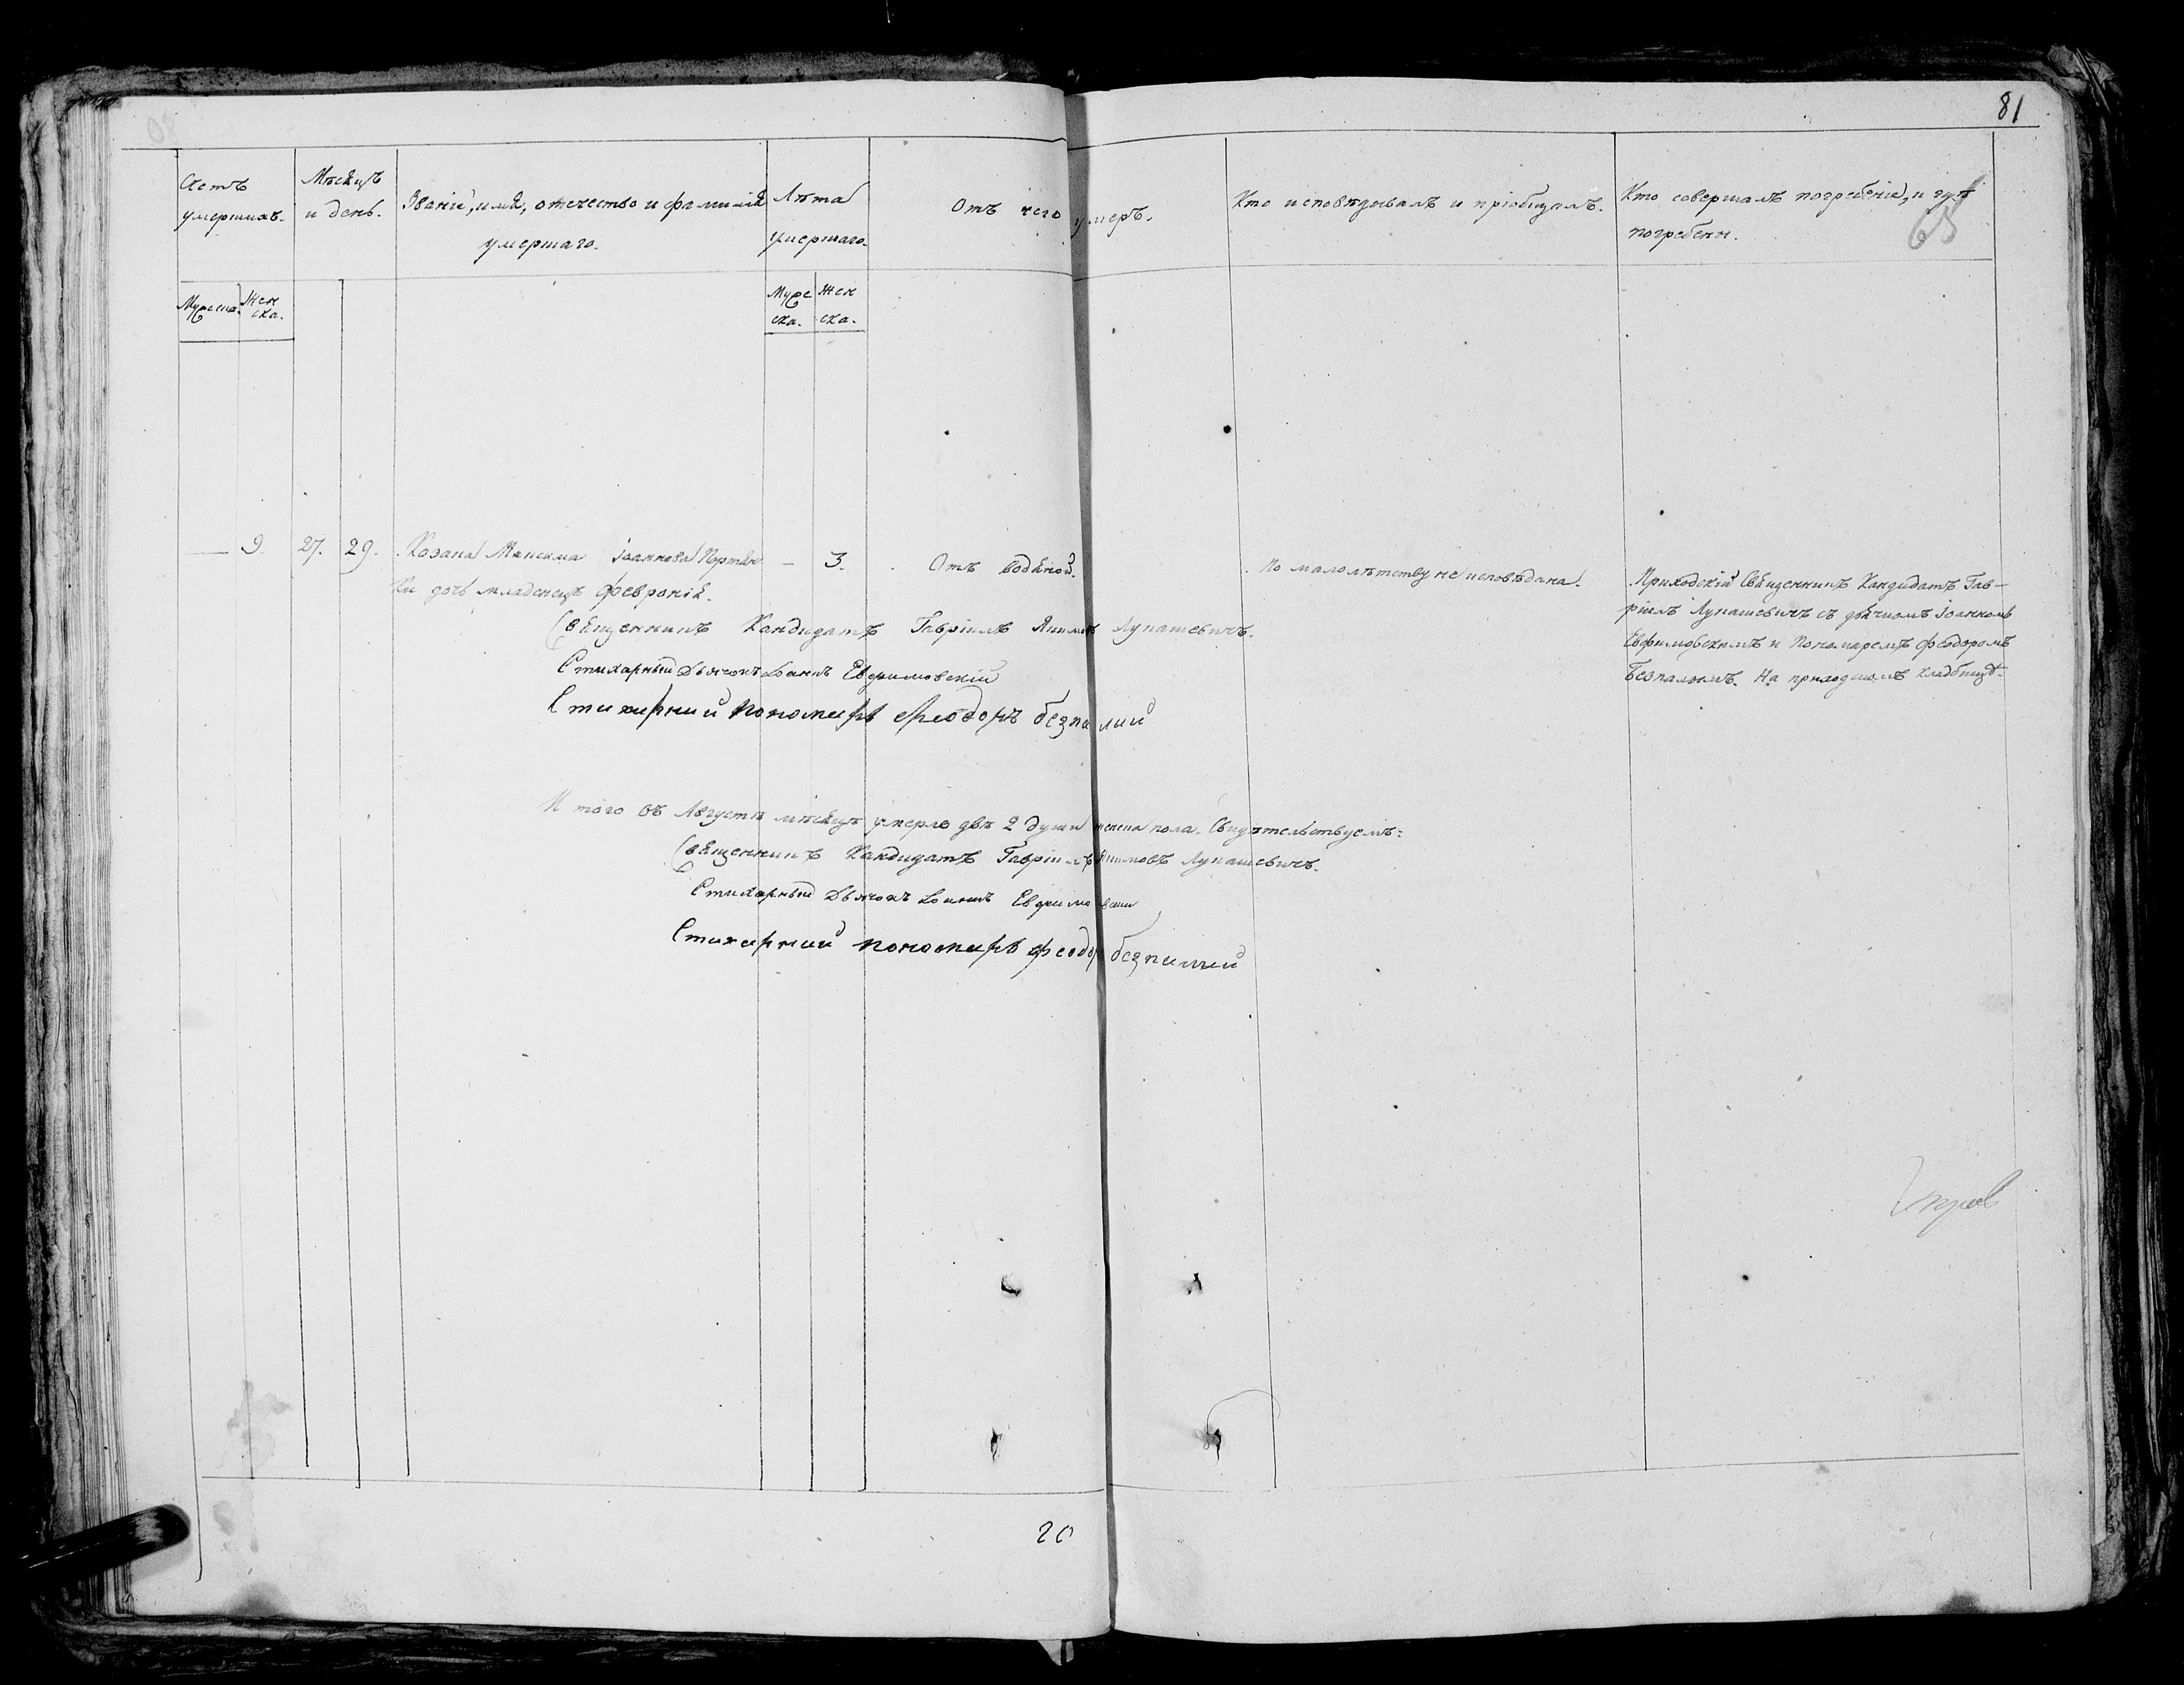 81
65
Счетъ умершихъ.
Мѣсяцъ и день.
Званіе, имя, отечество и фамилія
умершаго.
Лѣта
умершаго.
Отъ чего умеръ.
Кто исповѣдывалъ и пріобщалъ.
Кто совершалъ погребеніе, и гдѣ
погребены.
Мужеска. Жен
ска.
Муже Жен
ска. ска.
— 9. 27. 29. Козака Максима Іоаннова
ки дочь младенецъ Февронія.
— 3.
Отъ водяной.
По малолѣтству не исповѣдана.
Приходскій Священникъ Кандидатъ Гав-
ріилъ Лукашевичъ съ дьячкомъ Іоанномъ
Евфимовскимъ и Пономаремъ Феодоромъ
Безпалымъ. На приходскомъ кладбищѣ.
Священникъ Кандидатъ Гавріилъ Лукашевичъ.
Стихарный Дьячокъ Іоаннъ Евфимовскій
Стихарний пономарь Феодоръ безпалий
Итого въ Августѣ мѣсяцѣ умерло двѣ 2 души женска пола. Свидѣтельствуемъ:
Священникъ Кандидатъ Гавріилъ Лукашевичъ.
Стихарный Дьячокъ Іоаннъ Евфимовскій
Стихарний пономарь феодор безпалий
20